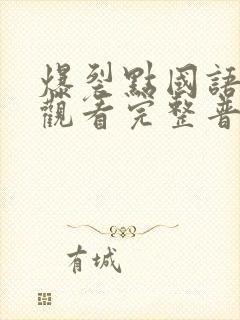 爆裂點國語
觀看完整普
有城